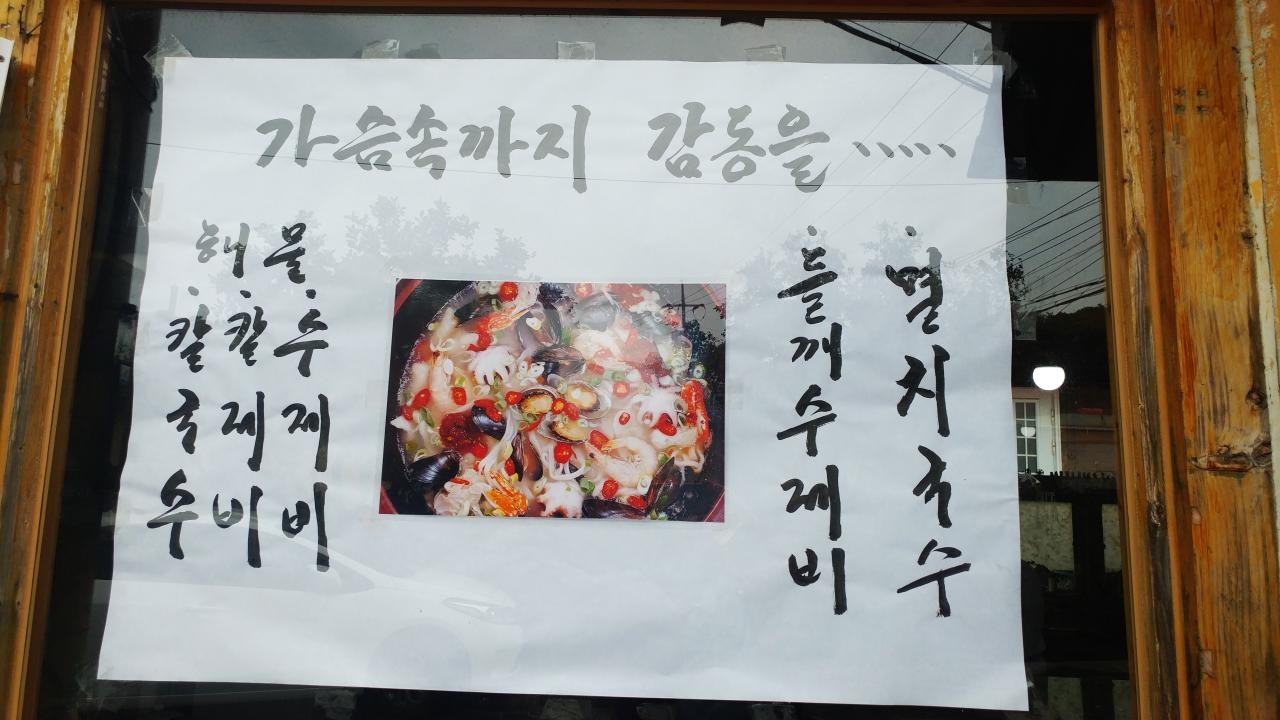 가슴속까지 감동을.....
해물
칼국수
칼제비
수제비
들깨수제비
멸치국수